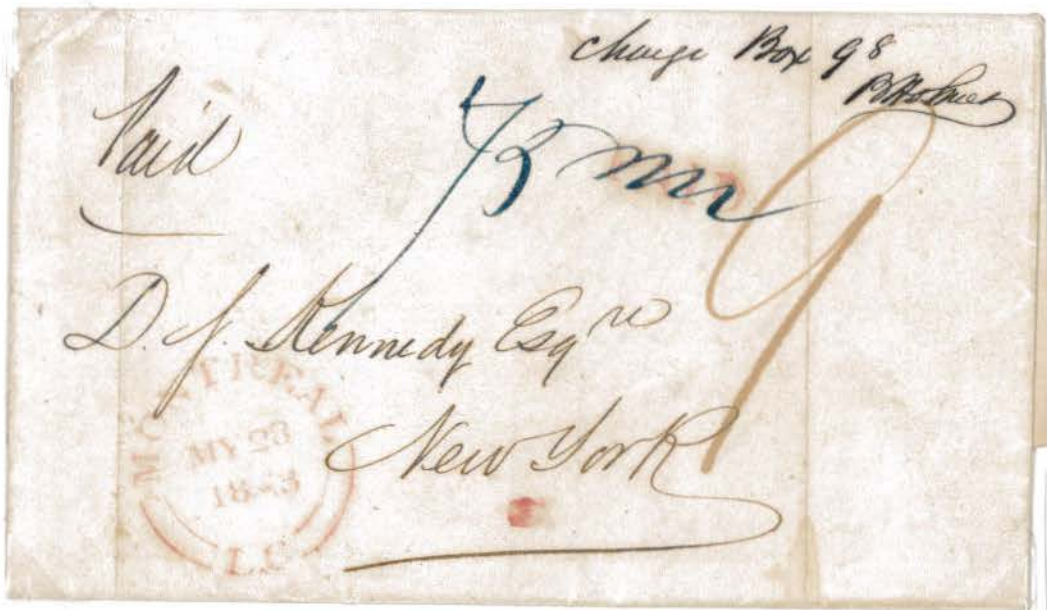 Charge Box 98
B Holmes
Paid
D. J. Kennedy Esqre
New York
MONTREAL
MY 23
1843
L.C
9